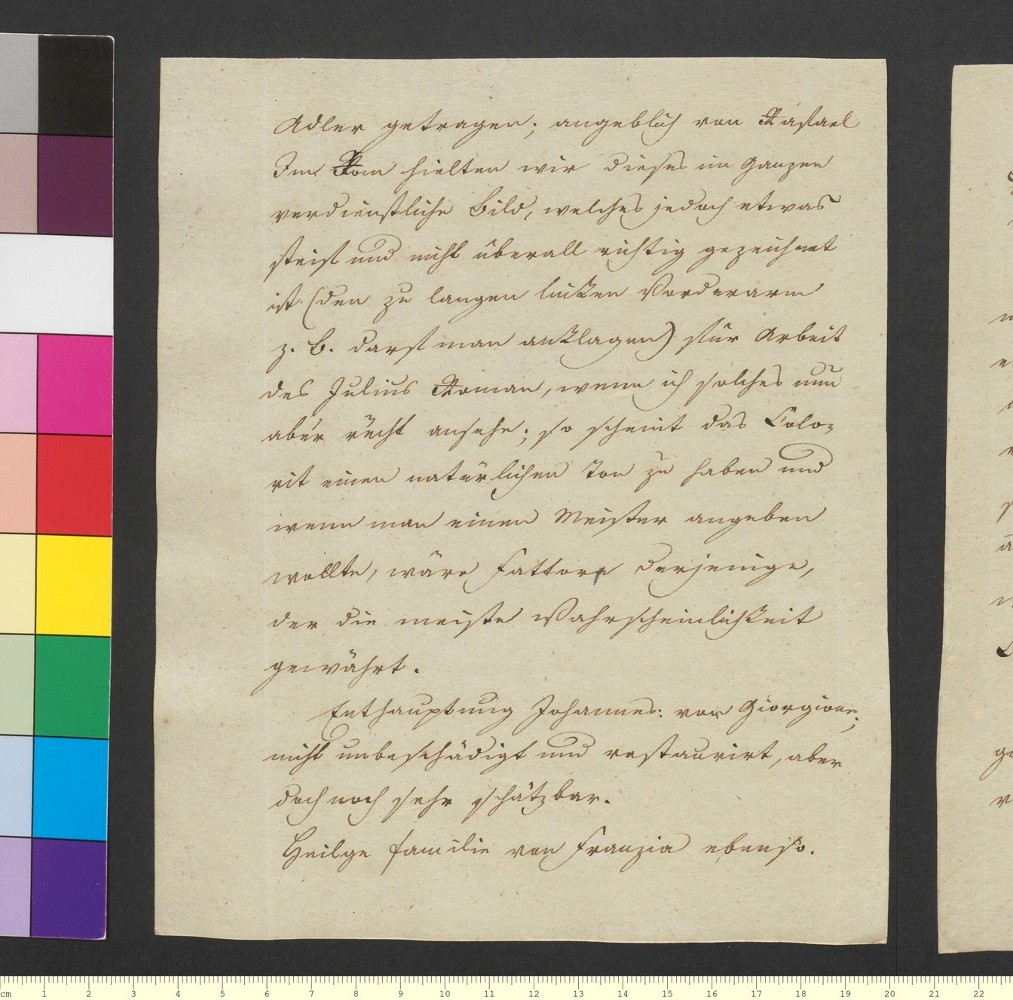 Adler getragen; angeblich von Rafael
Im Rom hielten wir dieses im Ganzen
verdienstliche Bild, welches jedoch etwas
steif und nicht überall richtig gezeichnet
ist (den zu langen linken Vorderarm
z. B. darf man anklagen) für Arbeit
des Julius Roman, wenn ich solches nun
aber recht ansehe; so scheint das Colo-
rit einen natürlichen Ton zu haben und
wenn man einen Meister angeben
wollte, wäre Fattore derjenige,
der die meiste Wahrscheinlichkeit
gewährt.
Enthauptung Johannes: von Giorgione,
nicht unbeschädigt und restaurirt, aber
doch noch sehr schätzbar.
Heilge Familie von Franzia ebenso.